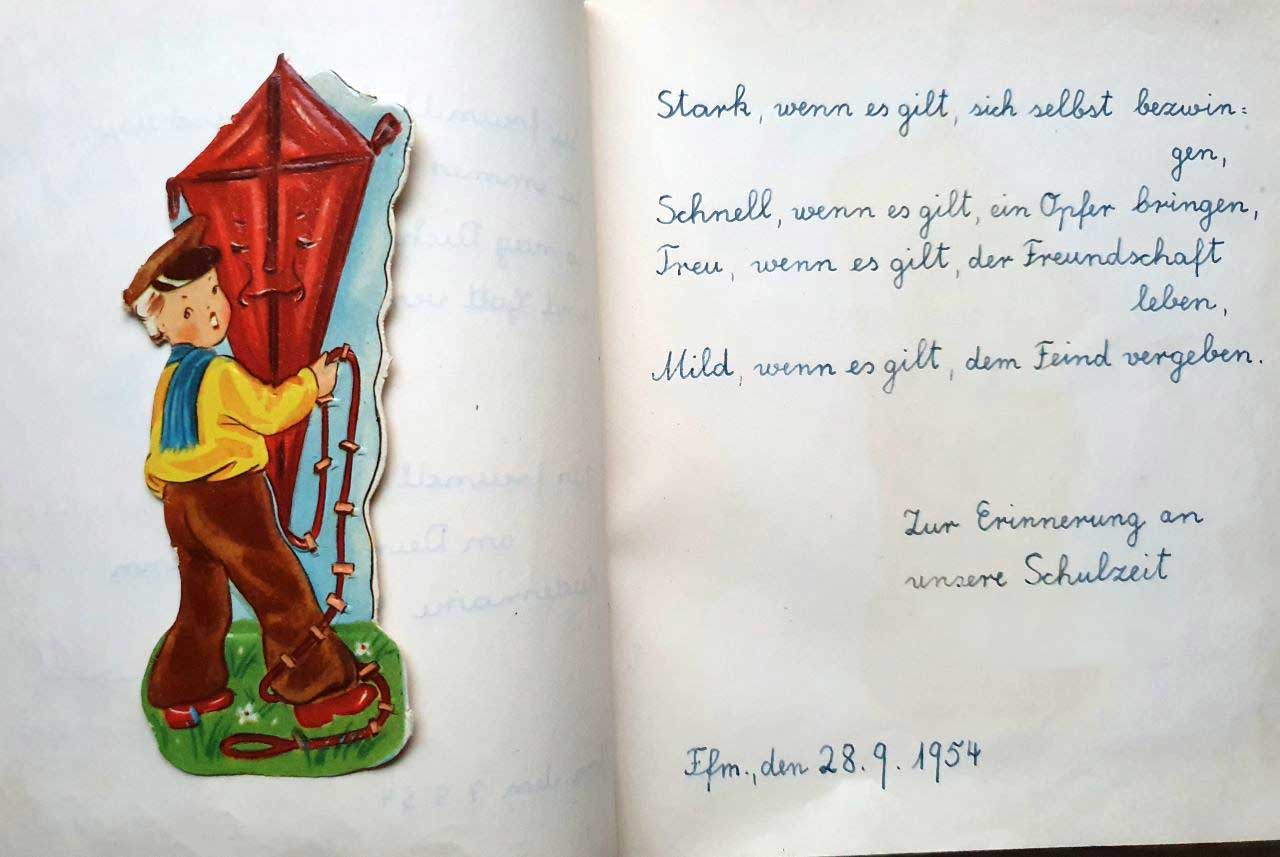 Stark, wenn es gilt, sich selbst bezwin=
gen,
Schnell, wenn es gilt, ein Opfer bringen,
Treu, wenn es gilt, der Freundschaft
leben,
Mild, wenn es gilt, dem Feind vergeben.
Zur Erinnerung an
unsere Schulzeit
Ffm., den 28. 9. 1954